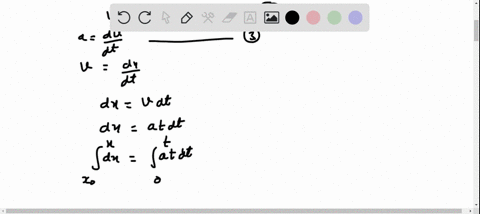 a = du/dt ———— ③
v = dx/dt
dx = v dt
dx = at dt
∫_{x₀}^{x} dx = ∫_{0}^{t} at dt